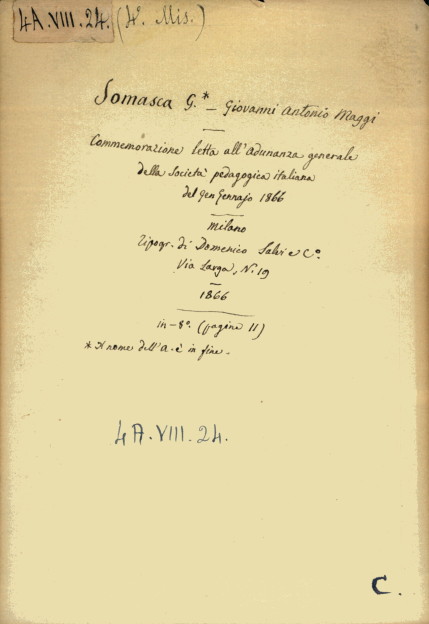 4A.VIII.24. (4°. Mis.)
Somasca G.* — Giovanni Antonio Maggi
Commemorazione letta all'Adunanza generale
della Società pedagogica italiana
del Gennajo 1866
Milano
Tipogr. di Domenico Salvi e C°.
Via Larga, N. 19
1866
in-8°. (pagine 11)
* Il nome dell'A. è in fine.
4A.VIII.24.
C.